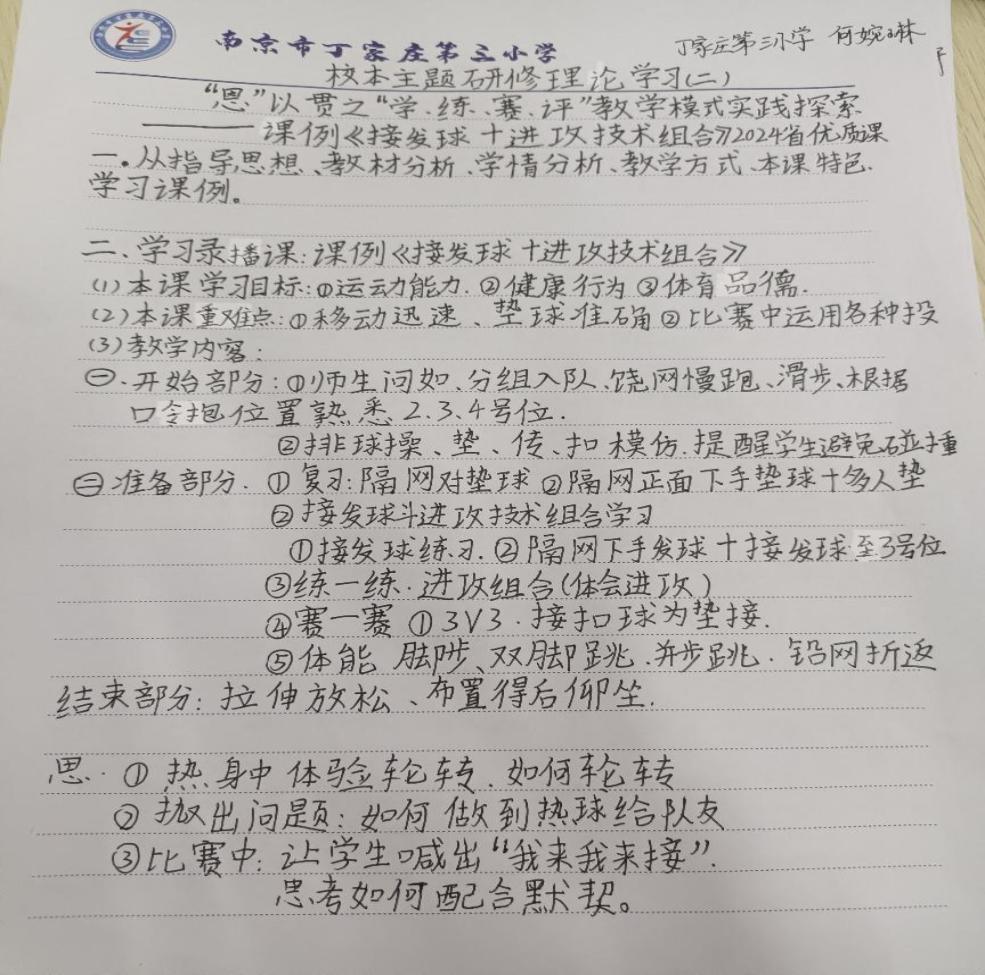 南京市丁家庄第三小学
丁家庄第三小学 何婉琳
校本主题研修理论学习(二)
“思”以贯之“学、练、赛、评”教学模式实践探索
——课例《接发球十进攻技术组合》2024省优质课
一.从指导思想、教材分析、学情分析、教学方式、本课特色.
学习课例。
二、学习录播课:课例《接发球十进攻技术组合》
(1)本课学习目标:①运动能力.②健康行为③体育品德.
(2)本课重难点:①移动迅速、垫球准确②比赛中运用各种投
(3)教学内容:
㊀.开始部分:①师生问如、分组入队、饶网慢跑、滑步、根据
口令抱位置熟悉2.3.4号位.
②排球操、垫、传、扣模仿.提醒学生避免碰撞
㊁准备部分.①复习:隔网对垫球②隔网正面下手垫球十多人垫
②接发球斗进攻技术组合学习
①接发球练习.②隔网下手发球十接发球至3号位
③练一练.进攻组合(体会进攻)
④赛一赛①3V3.接扣球为垫接.
⑤体能 脚步、双脚跳.并步跳.铅网折返
结束部分:拉伸放松、布置得后仰坐.
思.①热身中体验轮转.如何轮转
②抛出问题:如何做到热球给队友
③比赛中:让学生喊出“我来我来接”.
思考如何配合默契。